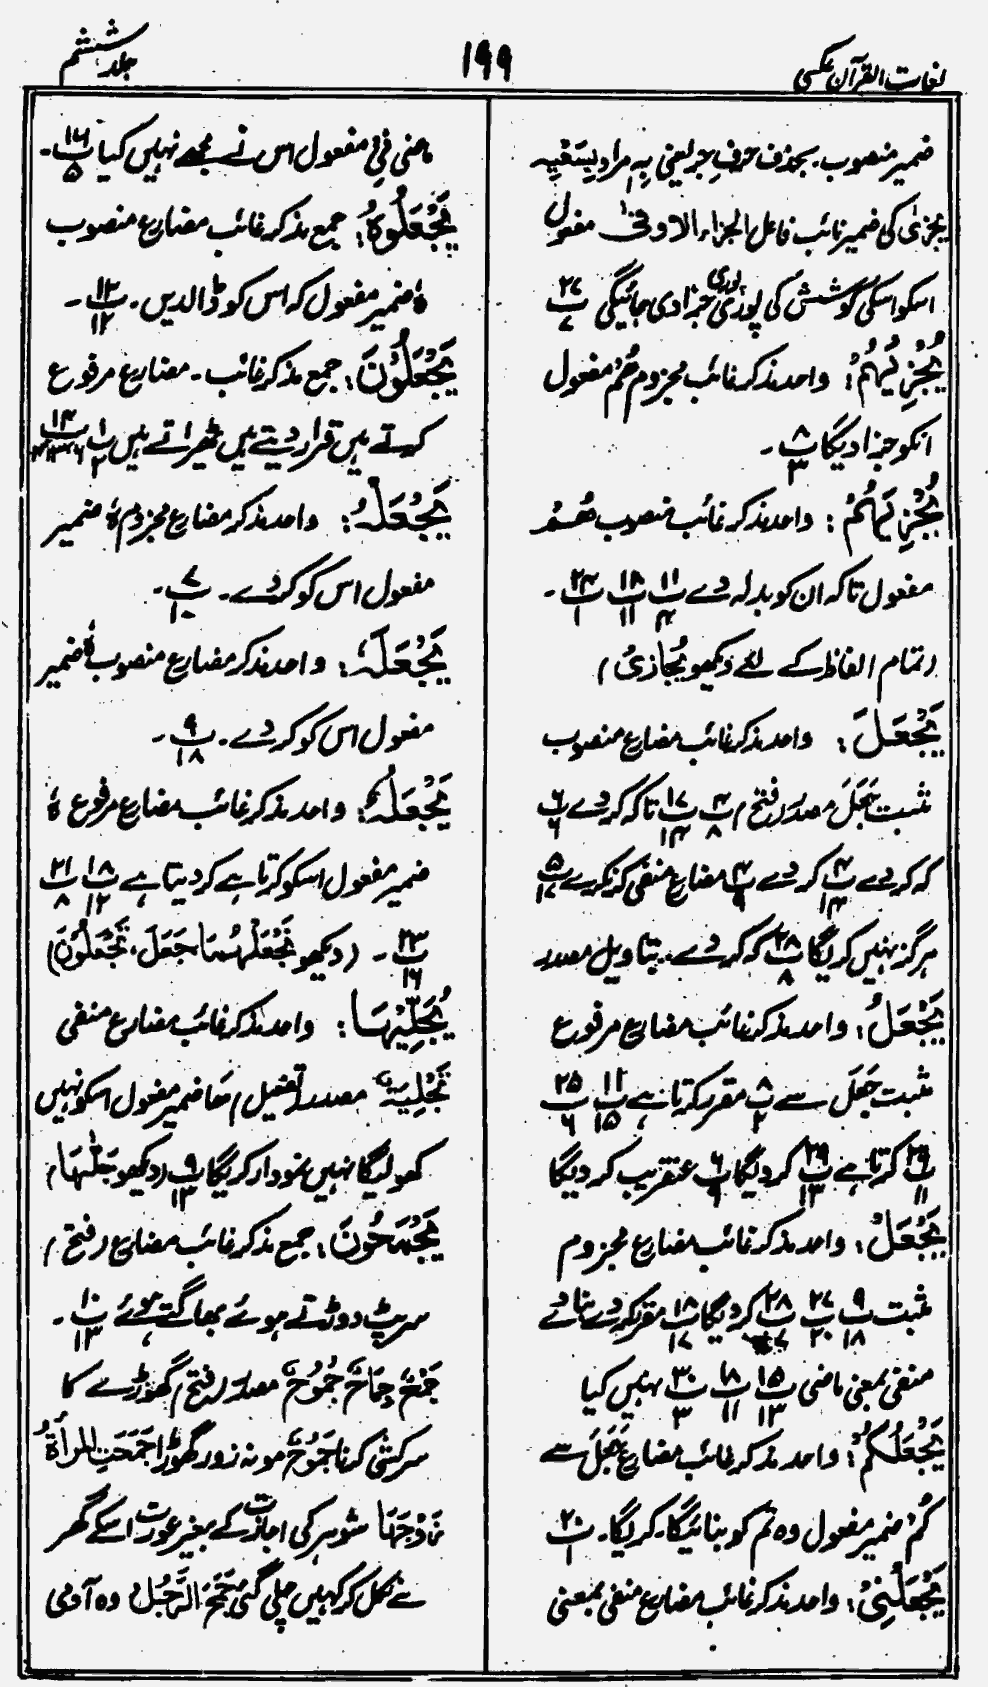 لغات القرآن عکسی
۱۹۹
جلد ششم
ضمیر منصوب۔ بحذف حرفِ جر یعنی بِہٖ مراد بِسَعْیِہٖ
یجزیٰ کی ضمیر نائب فاعل الجزاء الاوفیٰ مفعول
اسکو اسکی کوشش کی پوری پوری جزا دی جائیگی پ ۲۷/۷
یُجْزِیْہُمْ: واحد مذکر غائب مجزوم ھُمْ مفعول
انکو جزا دیگا پ ۸/۳۔
یُجْزِیَہُمْ: واحد مذکر غائب منصوب ھُمْ
مفعول تاکہ ان کو بدلہ دے پ ۱۱/۴ پ ۱۸/۱۱ پ ۲۴/۱۔
(تمام الفاظ کے لئے دیکھو نُجَازِیْ)
یَجْعَلَ: واحد مذکر غائب مضارع منصوب
مثبت جَعَلَ مصدر (فتح) پ ۴/۸ پ ۱۷/۱۴ تاکہ کر دے پ ۶/۶
کہ کر دے پ ۴/۱۴ کر دے پ ۴/۹ مضارع منفی کہ نہ کرے پ ۵/۱۷
ہرگز نہیں کریگا پ ۲۸/۸ کہ کر دے۔ بتاویل مصدر
یَجْعَلُ: واحد مذکر غائب مضارع مرفوع
مثبت جَعَلَ سے پ ۸/۲ مقرر کرتا ہے پ ۱۲/۱۵ پ ۲۵/۶
پ ۲۹/۱۱ کرتا ہے پ ۲۹/۱۳ کر دیگا پ ۶/۹ عنقریب کر دیگا
یَجْعَلْ: واحد مذکر غائب مضارع مجزوم
مثبت پ ۹/۱۸ پ ۲۷/۲۰ پ ۲۸ کر دیگا پ ۱۸/۱۷ مقرر کر دے بنا دے
منفی بمعنی ماضی پ ۱۵/۱۳ پ ۱۸/۱۱ پ ۳۰/۳ نہیں کیا
یَجْعَلُکُمْ: واحد مذکر غائب مضارع جَعَلَ سے
کُمْ ضمیر مفعول وہ تم کو بنائیگا۔ کریگا۔ پ ۲۰/۱
یَجْعَلْنِیْ: واحد مذکر غائب مضارع منفی بمعنی
ماضی فِیْ مفعول اس نے مجھے نہیں کیا پ ۱۶/۵۔
یَجْعَلُوْہُ: جمع مذکر غائب مضارع منصوب
ہٗ ضمیر مفعول کہ اس کو ڈالدیں۔ پ ۱۲/۱۲۔
یَجْعَلُوْنَ: جمع مذکر غائب۔ مضارع مرفوع
کرتے ہیں قرار دیتے ہیں ٹھیراتے ہیں پ ۱/۲ پ ۱۴
یَجْعَلْہُ: واحد مذکر مضارع مجزوم ہٗ ضمیر
مفعول اس کو کر دے۔ پ ۷/۱۰۔
یَجْعَلَہٗ: واحد مذکر مضارع منصوب ہٗ ضمیر
مفعول اس کو کر دے۔ پ ۹/۱۸۔
یَجْعَلُہٗ: واحد مذکر غائب مضارع مرفوع ہٗ
ضمیر مفعول اسکو کرتا ہے کر دیتا ہے پ ۱۸/۱۲ پ ۲۱/۸
پ ۲۳/۱۶۔ (دیکھو نَجْعَلُہُمَا جَعَلَ، تَجْعَلُوْنَ)
یُجَلِّیْہَا: واحد مذکر غائب مضارع منفی
تَجْلِیَۃٌ مصدر (تفعیل) ھَا ضمیر مفعول اسکو نہیں
کھولیگا نہیں نمودار کریگا پ ۹/۱۳ (دیکھو جَلّٰہَا)
یَجْمَحُوْنَ: جمع مذکر غائب مضارع (فتح)
سرپٹ دوڑتے ہوئے بھاگتے ہوئے پ ۱۰/۱۳۔
جَمْحٌ جِمَاحٌ جُمُوْحٌ مصدر (فتح) گھوڑے کا
سرکشی کرنا جَمُوْحٌ مونہ زور گھوڑا جَمَحَتِ المَرأَۃُ
زَوْجَہَا شوہر کی اجازت کے بغیر عورت اسکے گھر
سے نکل کر کہیں چلی گئی جَمَحَ الرَّجُلُ وہ آدمی